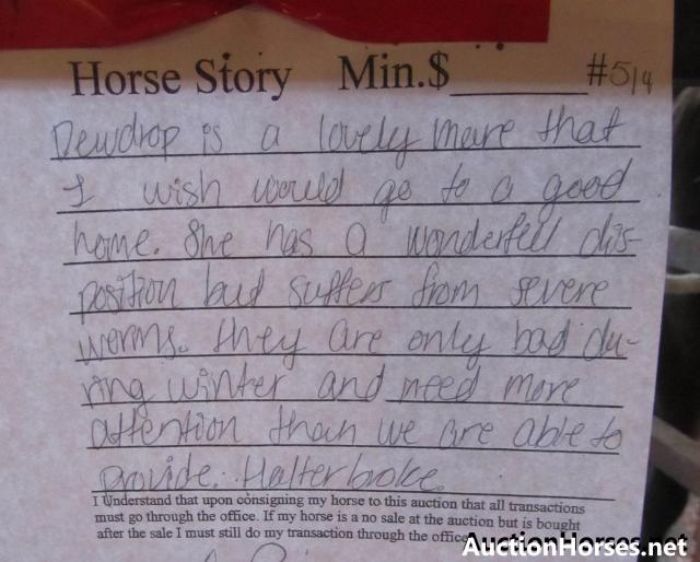 Horse Story Min.$______ #514
Dewdrop is a lovely mare that
I wish would go to a good
home. She has a wonderfull dis-
position but suffers from severe
worms. They are only bad du-
ring winter and need more
attention than we are able to
provide. Halter broke.
I Understand that upon consigning my horse to this auction that all transactions
must go through the office. If my horse is a no sale at the auction but is bought
after the sale I must still do my transaction through the office
AuctionHorses.net